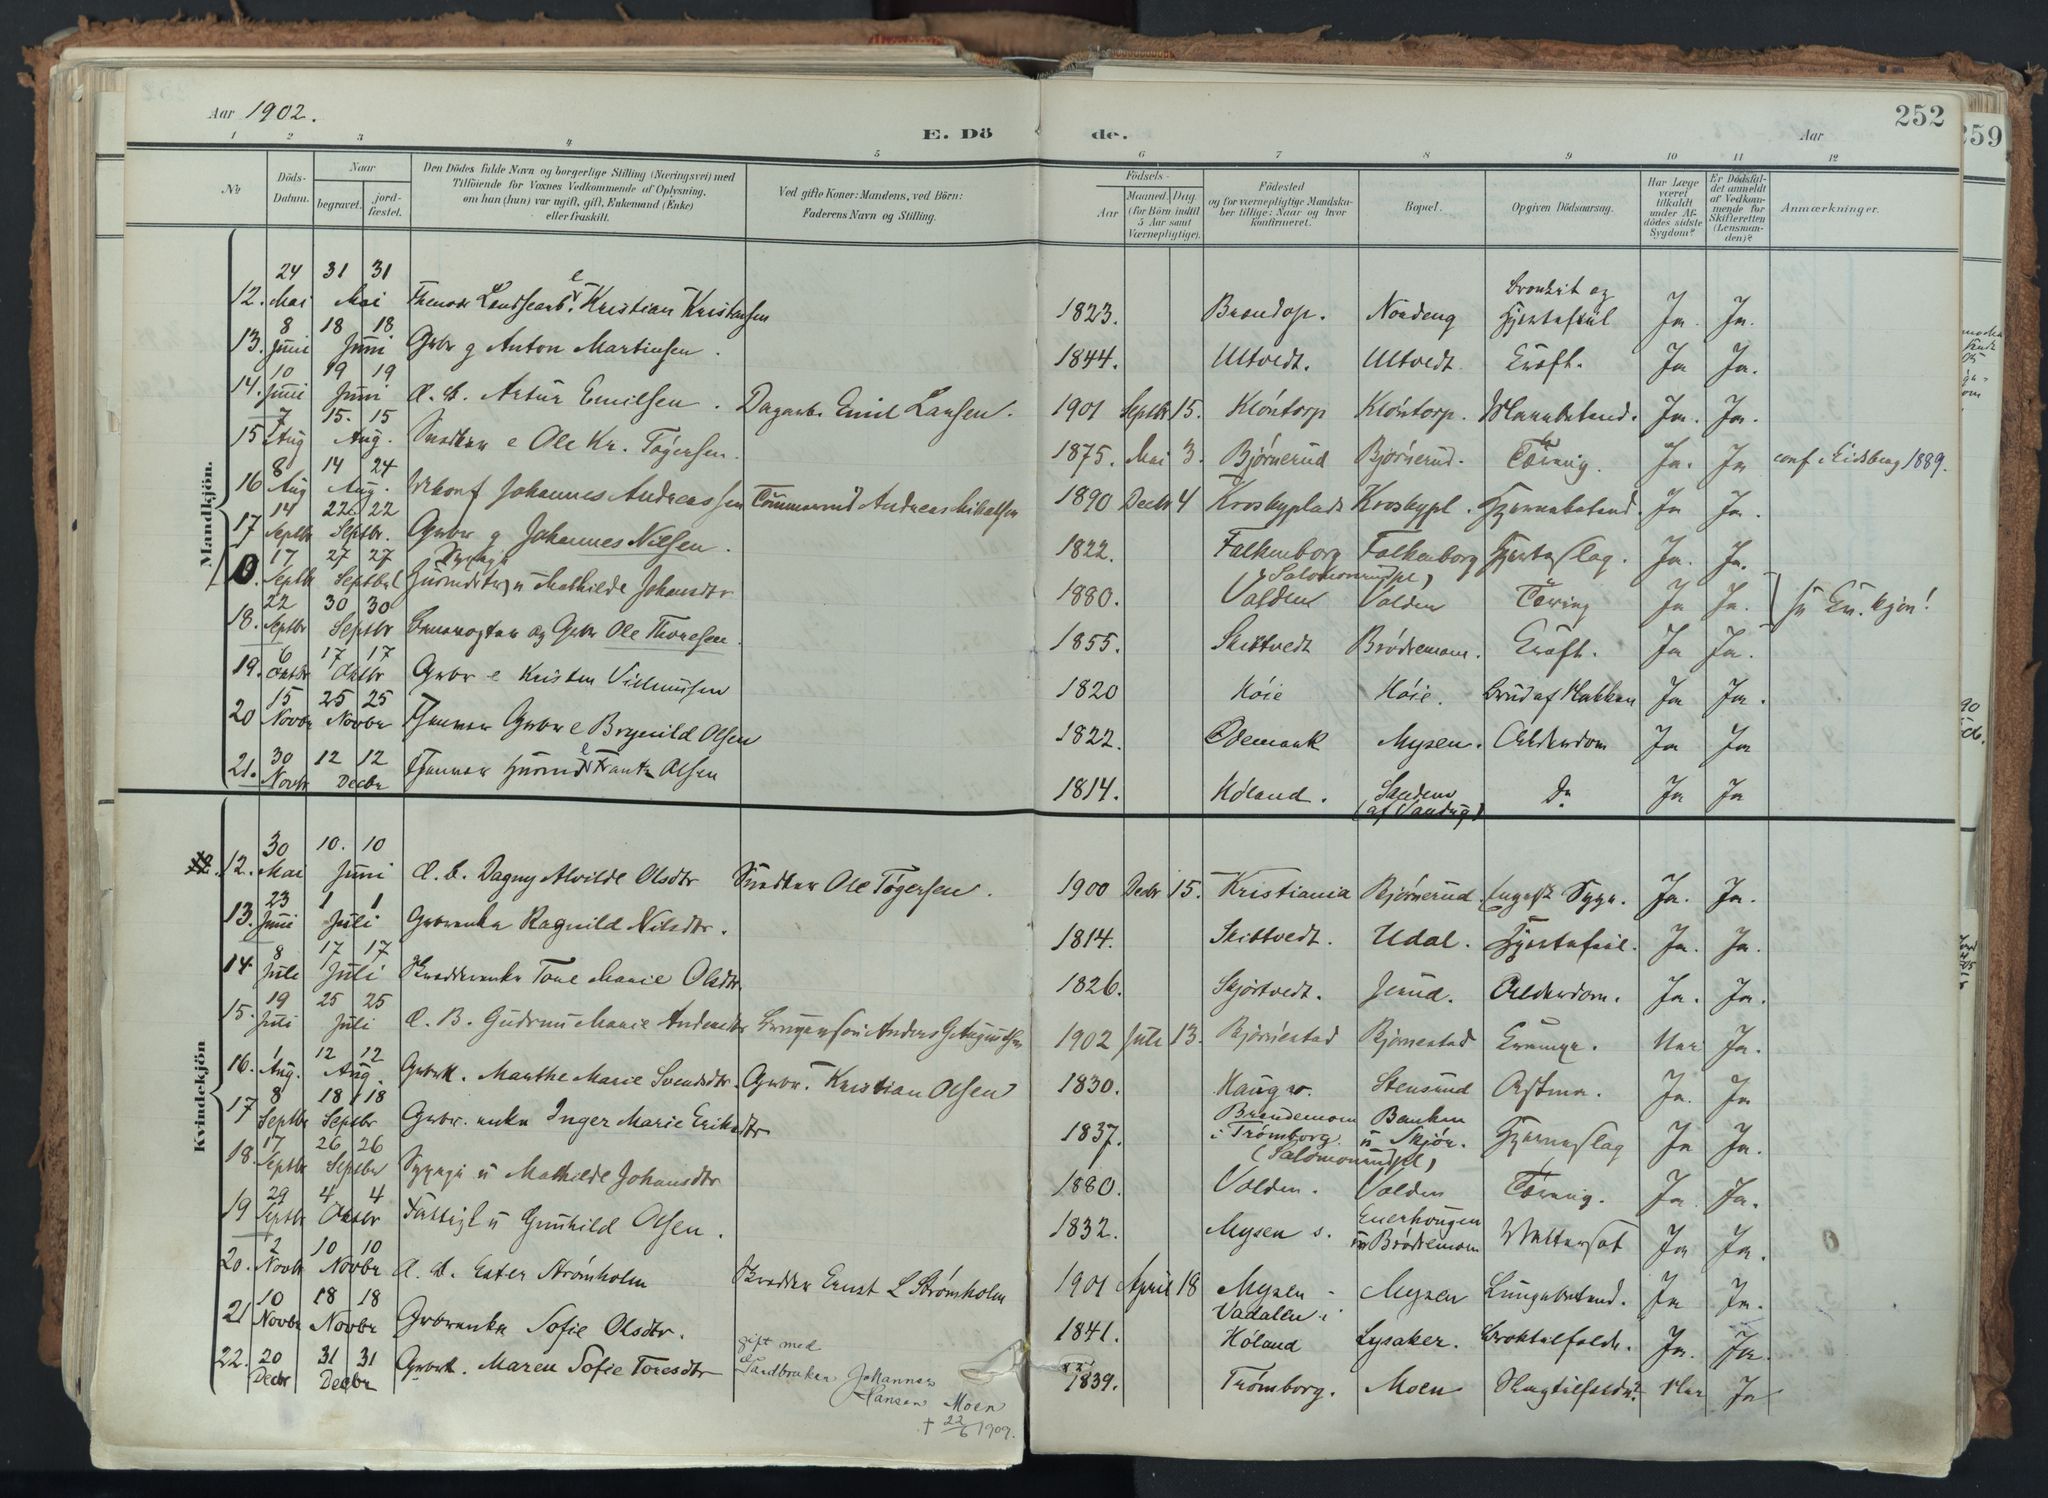 Aar 1902.
E. Dö de.
Aar
252
259
1 2 3 4 5 6 7 8 9 10 11 12
No
Döds-Datum.
Naar
begravet.
jord-fæstet.
Den Dödes fulde Navn og borgerlige Stilling (Næringsvei) med
Tilföiende for Voxnes Vedkommende af Oplysning,
om han (hun) var ugift, gift, Enkemand (Enke)
eller fraskilt.
Ved gifte Koner: Mandens, ved Börn:
Faderens Navn og Stilling.
Födsels-
Aar
Maaned. Dag.
(for Börn indtil
5 Aar samt
Værnepligtige).
Födested
og for værnepligtige Mandska-
ber tillige: Naar og hvor
konfirmeret.
Bopæl.
Opgiven Dödsaarsag.
Har Læge
været
tilkaldt
under Af-
dödes sidste
Sygdom?
Er Dödsfal-
det anmeldt
af Vedkom-
mende for
Skifteretten
(Lensman-
den)?
Anmærkninger.
Mandkjön.
12. 24 Mai 31 31 Mai Kristian Kristiansen 1823. Brandop. Nordeng Bronkit og Hjertefeil Ja. Ja.
13. 8 Juni 18 18 Juni Gbr g Anton Martinsen. 1844. Ultvedt. Ultvedt Kræft. Ja Ja.
14. 10 Juni 19 19 Juni Æ. B. Artur Emilsen. Dagarb. Emil Larsen. 1901 Septbr 15. Klöntorp Klöntorp. Ja. Ja.
15 7 Aug 15. 15 Aug. Snedker e Ole Kr. Tøgersen. 1875. Mai 3. Bjørnerud Bjørnerud. Tæring. Ja. Ja conf. i Eidsberg 1889.
16 8 Aug 14 24 Aug. Johannes Andreassen Tømmermd Andreas Mikalsen 1890 Decbr 4 Krosbyplads Krosbypl. Hjernebetænd. Ja Ja.
17 14 Septbr 22. 22 Septbr. Gbr g Johannes Nilsen. 1822. Falkenborg Falkenborg Hjerteslag. Ja. Ja.
0. 17 Septbr 27 27 Septbr Sypige u Mathilde Johansdtr 1880. (Salomonrudpl) Volden Volden Tæring Ja Ja. Se Kv.kjøn!
18. 22 Septbr 30 30 Septbr og Gbr Ole Thoresen. 1855. Skiptvedt Brødremoen. Kræft. Ja Ja.
19. 6 Oktbr 17 17 Oktbr Gbr e Kristen Villumsen 1820 Høie Høie. Brud af Hakken Ja Ja.
20 15 Novbr 25 25 Novbr Gbr e Brynild Olsen 1822. Ødemark Mysen. Alderdom Ja Ja
21. 30 Novbr 12 12 Decbr Husmd e Frants Olsen 1814. Høland. (af Sandug) Do Ja Ja
Kvindekjön
12. 30 Mai 10. 10 Juni Æ. B. Dagny Alvilde Olsdtr Snedker Ole Tøgersen. 1900 Decbr 15. Kristiania Bjørnerud. Engelsk Syge. Ja. Ja.
13. 23 Juni 1 1 Juli Gbrenke Ragnild Nilsdtr. 1814. Skiptvedt. Udal. Hjertefeil. Ja. Ja.
14. 8 Juli 17 17 Juli Tone Marie Olsdtr. 1826. Skjørtvedt. Jerud. Alderdom. Ja. Ja.
15. 19 Juli 25 25 Juli Æ. B. Gudrun Marie Andersdtr Brugerson Anders G Augustsen 1902 Juli 13. Bjørnestad Bjørnestad Krampe. Nei Ja.
16. 1 Aug. 12 12 Aug. Gbrk. Marthe Marie Svendsdtr. Gbr. Kristian Olsen 1830. Haug v. Stensrud Astma. Ja. Ja
17 8 Septbr 18 18 Septbr Gbr. enke Inger Marie Eriksdtr 1837. Brødremoen i Trømborg. Banken u Skjør. Hjerneslag Ja Ja.
18. 17 Septbr 26 26 Septbr Sypige u Mathilde Johansdtr 1880. (Salomonrudpl) Volden. Volden Tæring. Ja Ja.
19 29 Septbr 4 4 Oktbr Fattigl u Gunhild Olsen. 1832. Mysen s. Enerhougen u Brødremoen Vattersot Ja Ja.
20. 2 Novbr 10 10 Novbr Æ. B. Ester Strømholm Skrædder Ernst L Strømholm 1901 April 18 Mysen Mysen Lungebetænd. Ja Ja.
21 10 Novbr 18 18 Novbr Gbrenke Sofie Olsdtr. 1841. Vadalen i Høland Lysaker. Ja. Ja.
22. 20 Decbr 31 31 Decbr Gbrk. Maren Sofie Toresdtr gift med Landbruker Johannes Hansen Moen † 22/6 1909. 1839. Trømborg. Moen Slagtilfælde? Nei Ja